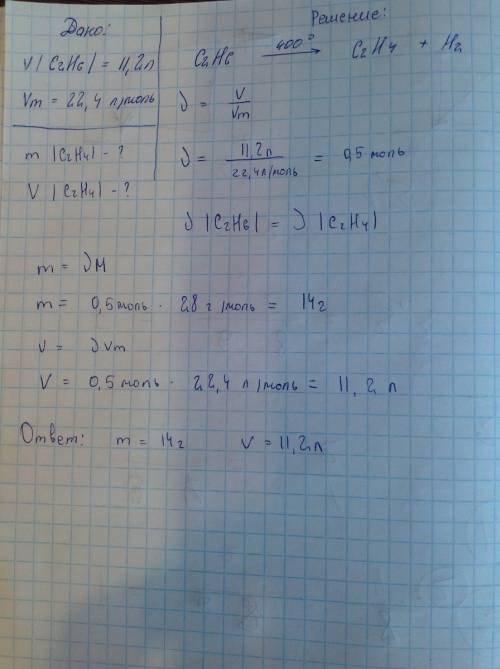 Дано:
V|C2H6| = 11,2л
Vm = 22,4 л/моль
m |C2H4| - ?
V |C2H4| - ?
Решение:
C2H6 400° → C2H4 + H2
ν = V/Vm
ν = 11,2л / 22,4л/моль = 0,5 моль
ν |C2H6| = ν |C2H4|
m = νM
m = 0,5 моль · 28 г/моль = 14г
V = νVm
V = 0,5 моль · 22,4 л/моль = 11,2 л
Ответ: m = 14г V = 11,2л